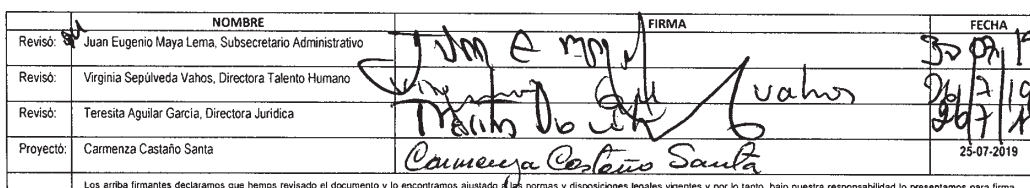 NOMBRE FIRMA FECHA
Revisó: Juan Eugenio Maya Lema, Subsecretario Administrativo Juan E Maya 30 07 19
Revisó: Virginia Sepúlveda Vahos, Directora Talento Humano Vahos 26/7/19
Revisó: Teresita Aguilar García, Directora Jurídica 26/7
Proyectó: Carmenza Castaño Santa Carmenza Castaño Santa 25-07-2019
Los arriba firmantes declaramos que hemos revisado el documento y lo encontramos ajustado a las normas y disposiciones legales vigentes y por lo tanto, bajo nuestra responsabilidad lo presentamos para firma